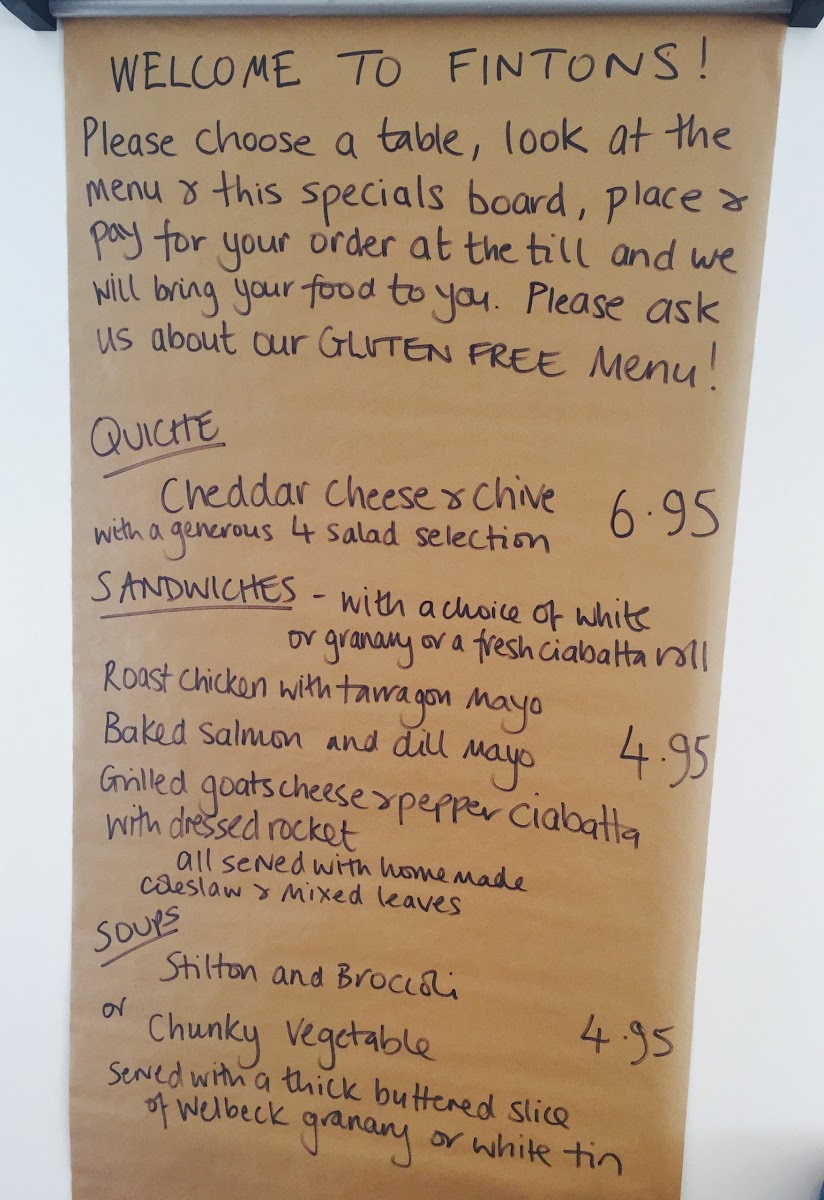 WELCOME TO FINTONS!
Please choose a table, look at the
menu & this specials board, place &
pay for your order at the till and we
will bring your food to you. Please ask
us about our GLUTEN FREE Menu!
QUICHE
Cheddar Cheese & Chive 6.95
with a generous 4 salad selection
SANDWICHES - with a choice of white
or granary or a fresh ciabatta roll
Roast chicken with tarragon mayo
Baked salmon and dill mayo 4.95
Grilled goats cheese & pepper ciabatta
with dressed rocket
all served with home made
coleslaw & mixed leaves
SOUPS
Stilton and Broccoli
or
Chunky Vegetable 4.95
served with a thick buttered slice
of Welbeck granary or white tin